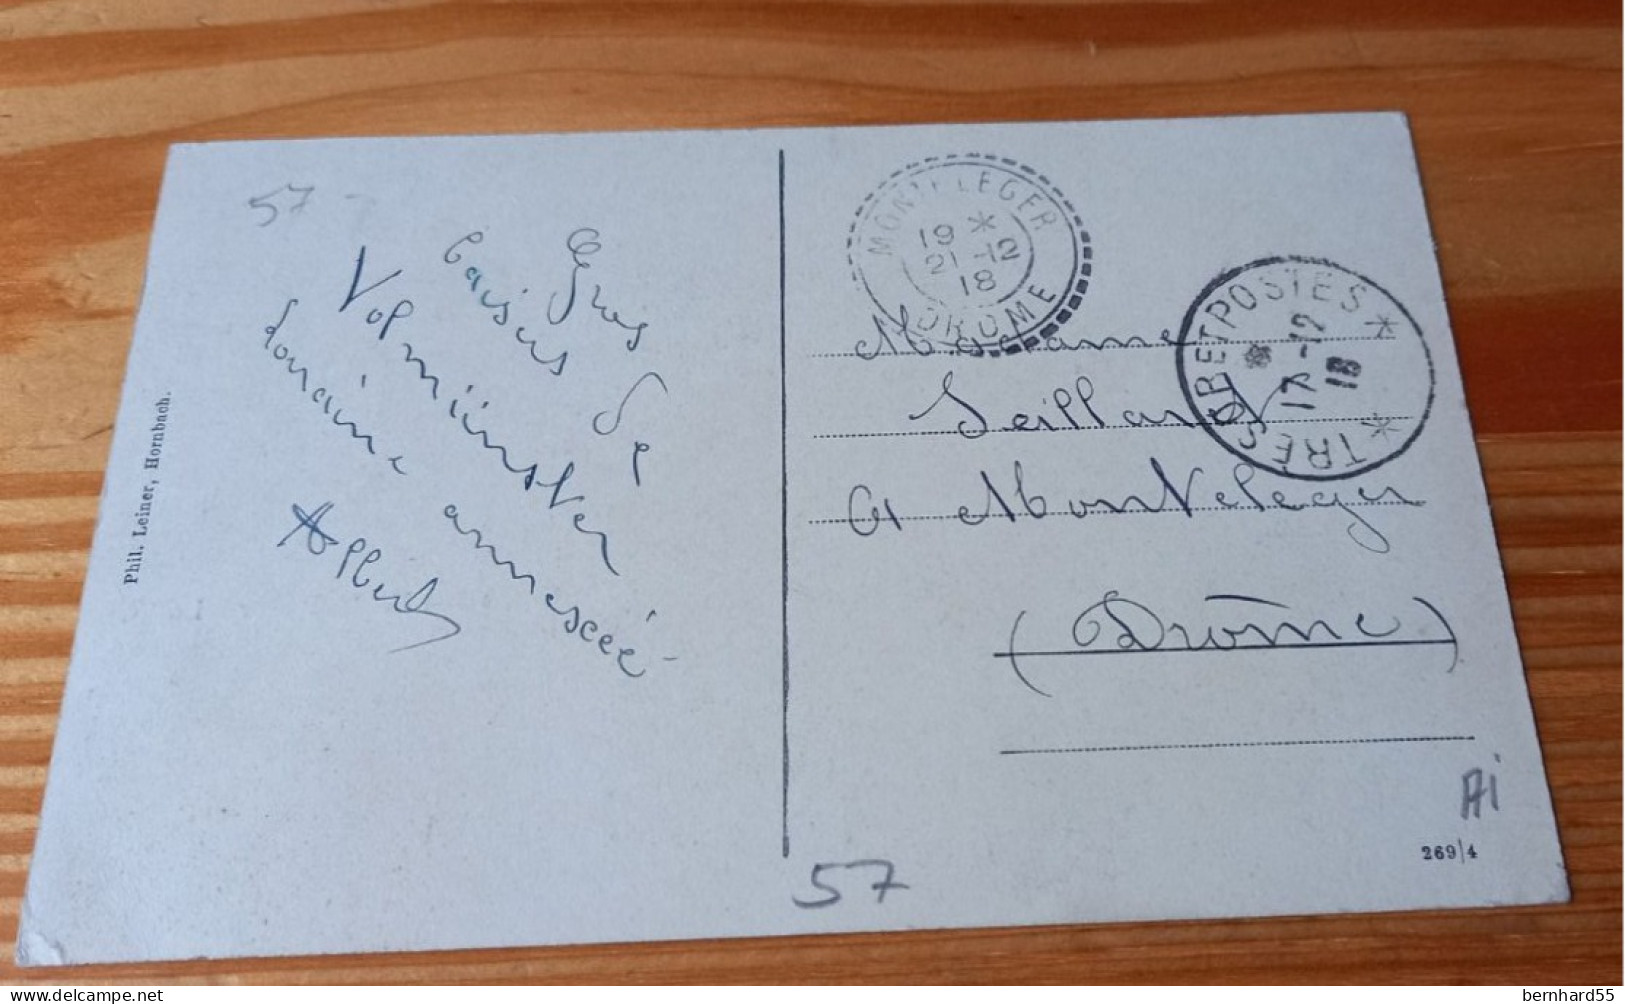 57
Gros
baisers de
Volmünster
Lorraine annexée
Albert
Phil. Leiner, Hornbach.
MONTELEGER
19 *
21 -12
18
DROME
* TRESOR ET POSTES *
*
17-12
18
Madame
Seilland
A Monteleger
(Drôme)
Ai
269/4
57
bernhard55
delcampe.net